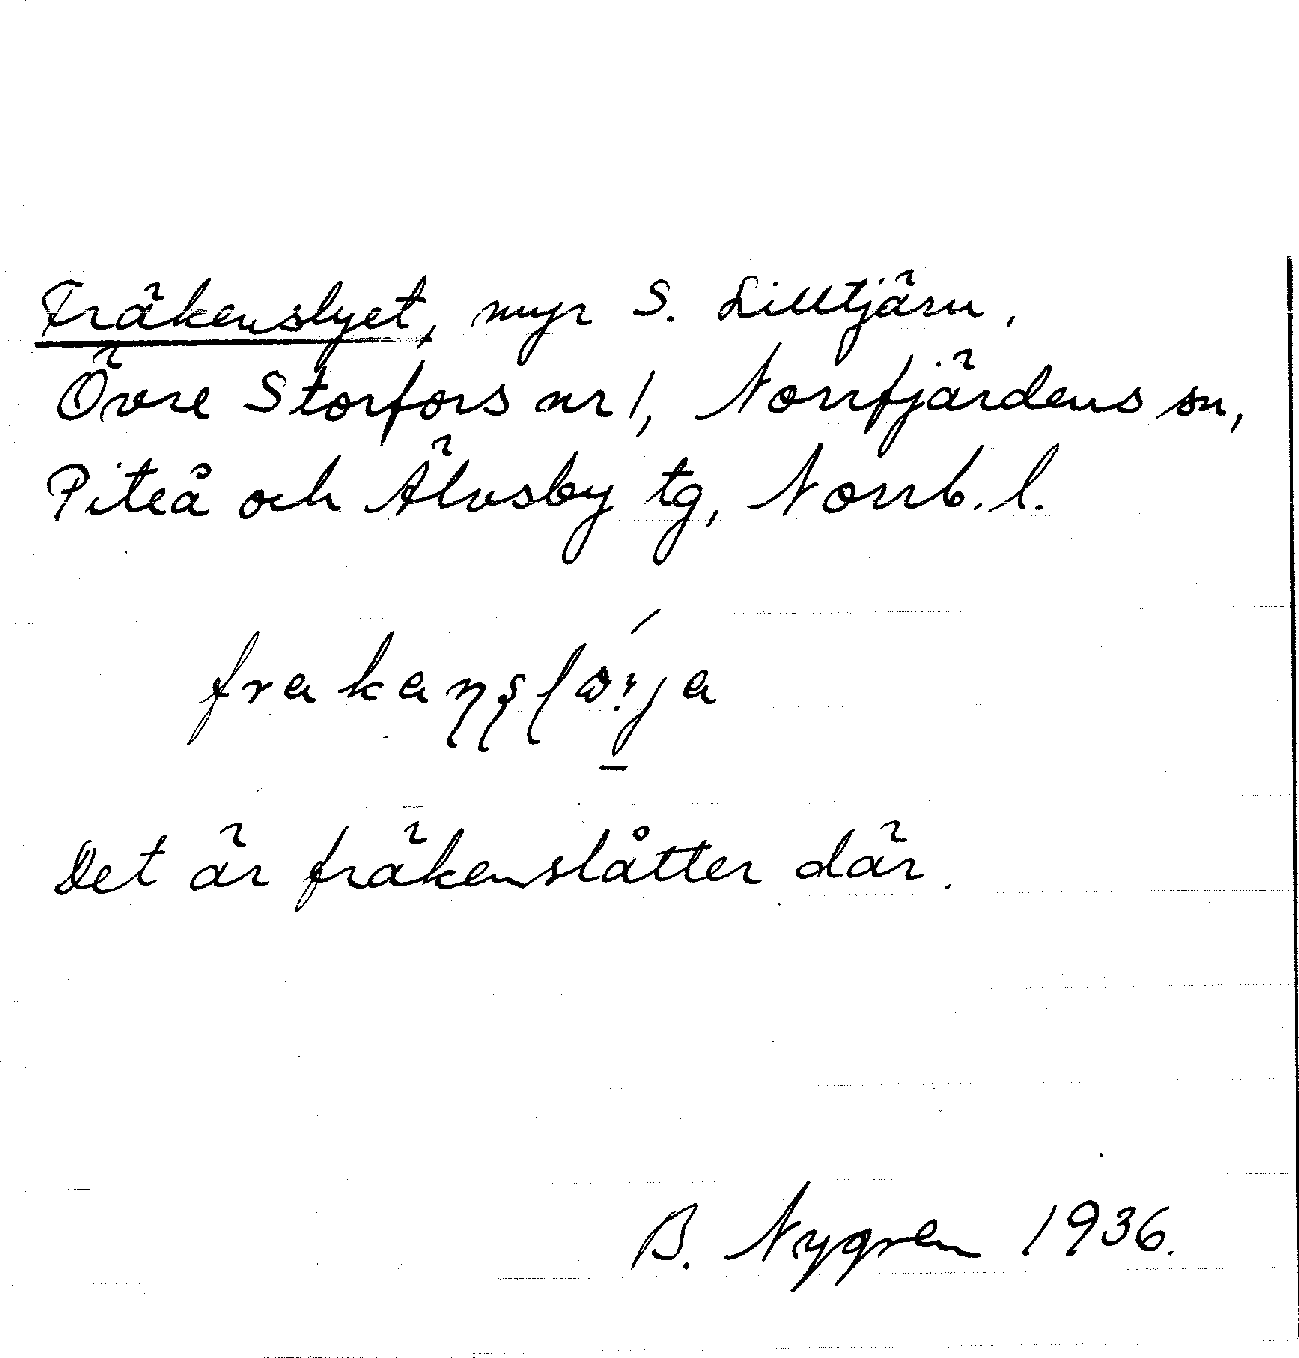 Fräkenslyet, myr S. Lilltjärn,
Övre Storfors nr 1, Norrfjärdens sn,
Piteå och Älvsby tg, Norrb. l.
Det är fräkenslåtter där.
B. Nygren 1936.